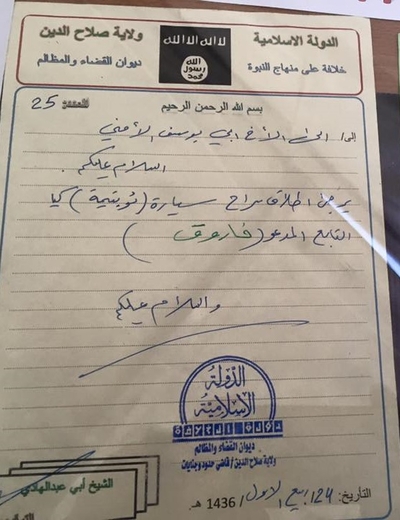 الدولة الاسلامية
خلافة على منهاج النبوة
لا اله الا الله
الله
رسول
محمد
ولاية صلاح الدين
ديوان القضاء والمظالم
بسم الله الرحمن الرحيم
العدد 25
إلى/ الأخ ابي يوسف الأمني
السلام عليكم.
يرجى اطلاق سراح سيارة (نوبتيمة) كيا
التابع المدعو (فاروق)
والسلام عليكم
الدولة
الإسلامية
ديوان القضاء والمظالم
ولاية صلاح الدين / قاضي حدود وجنايات
الشيخ أبي عبدالهادي
التاريخ: 24/ ربيع الاول / 1436 هـ